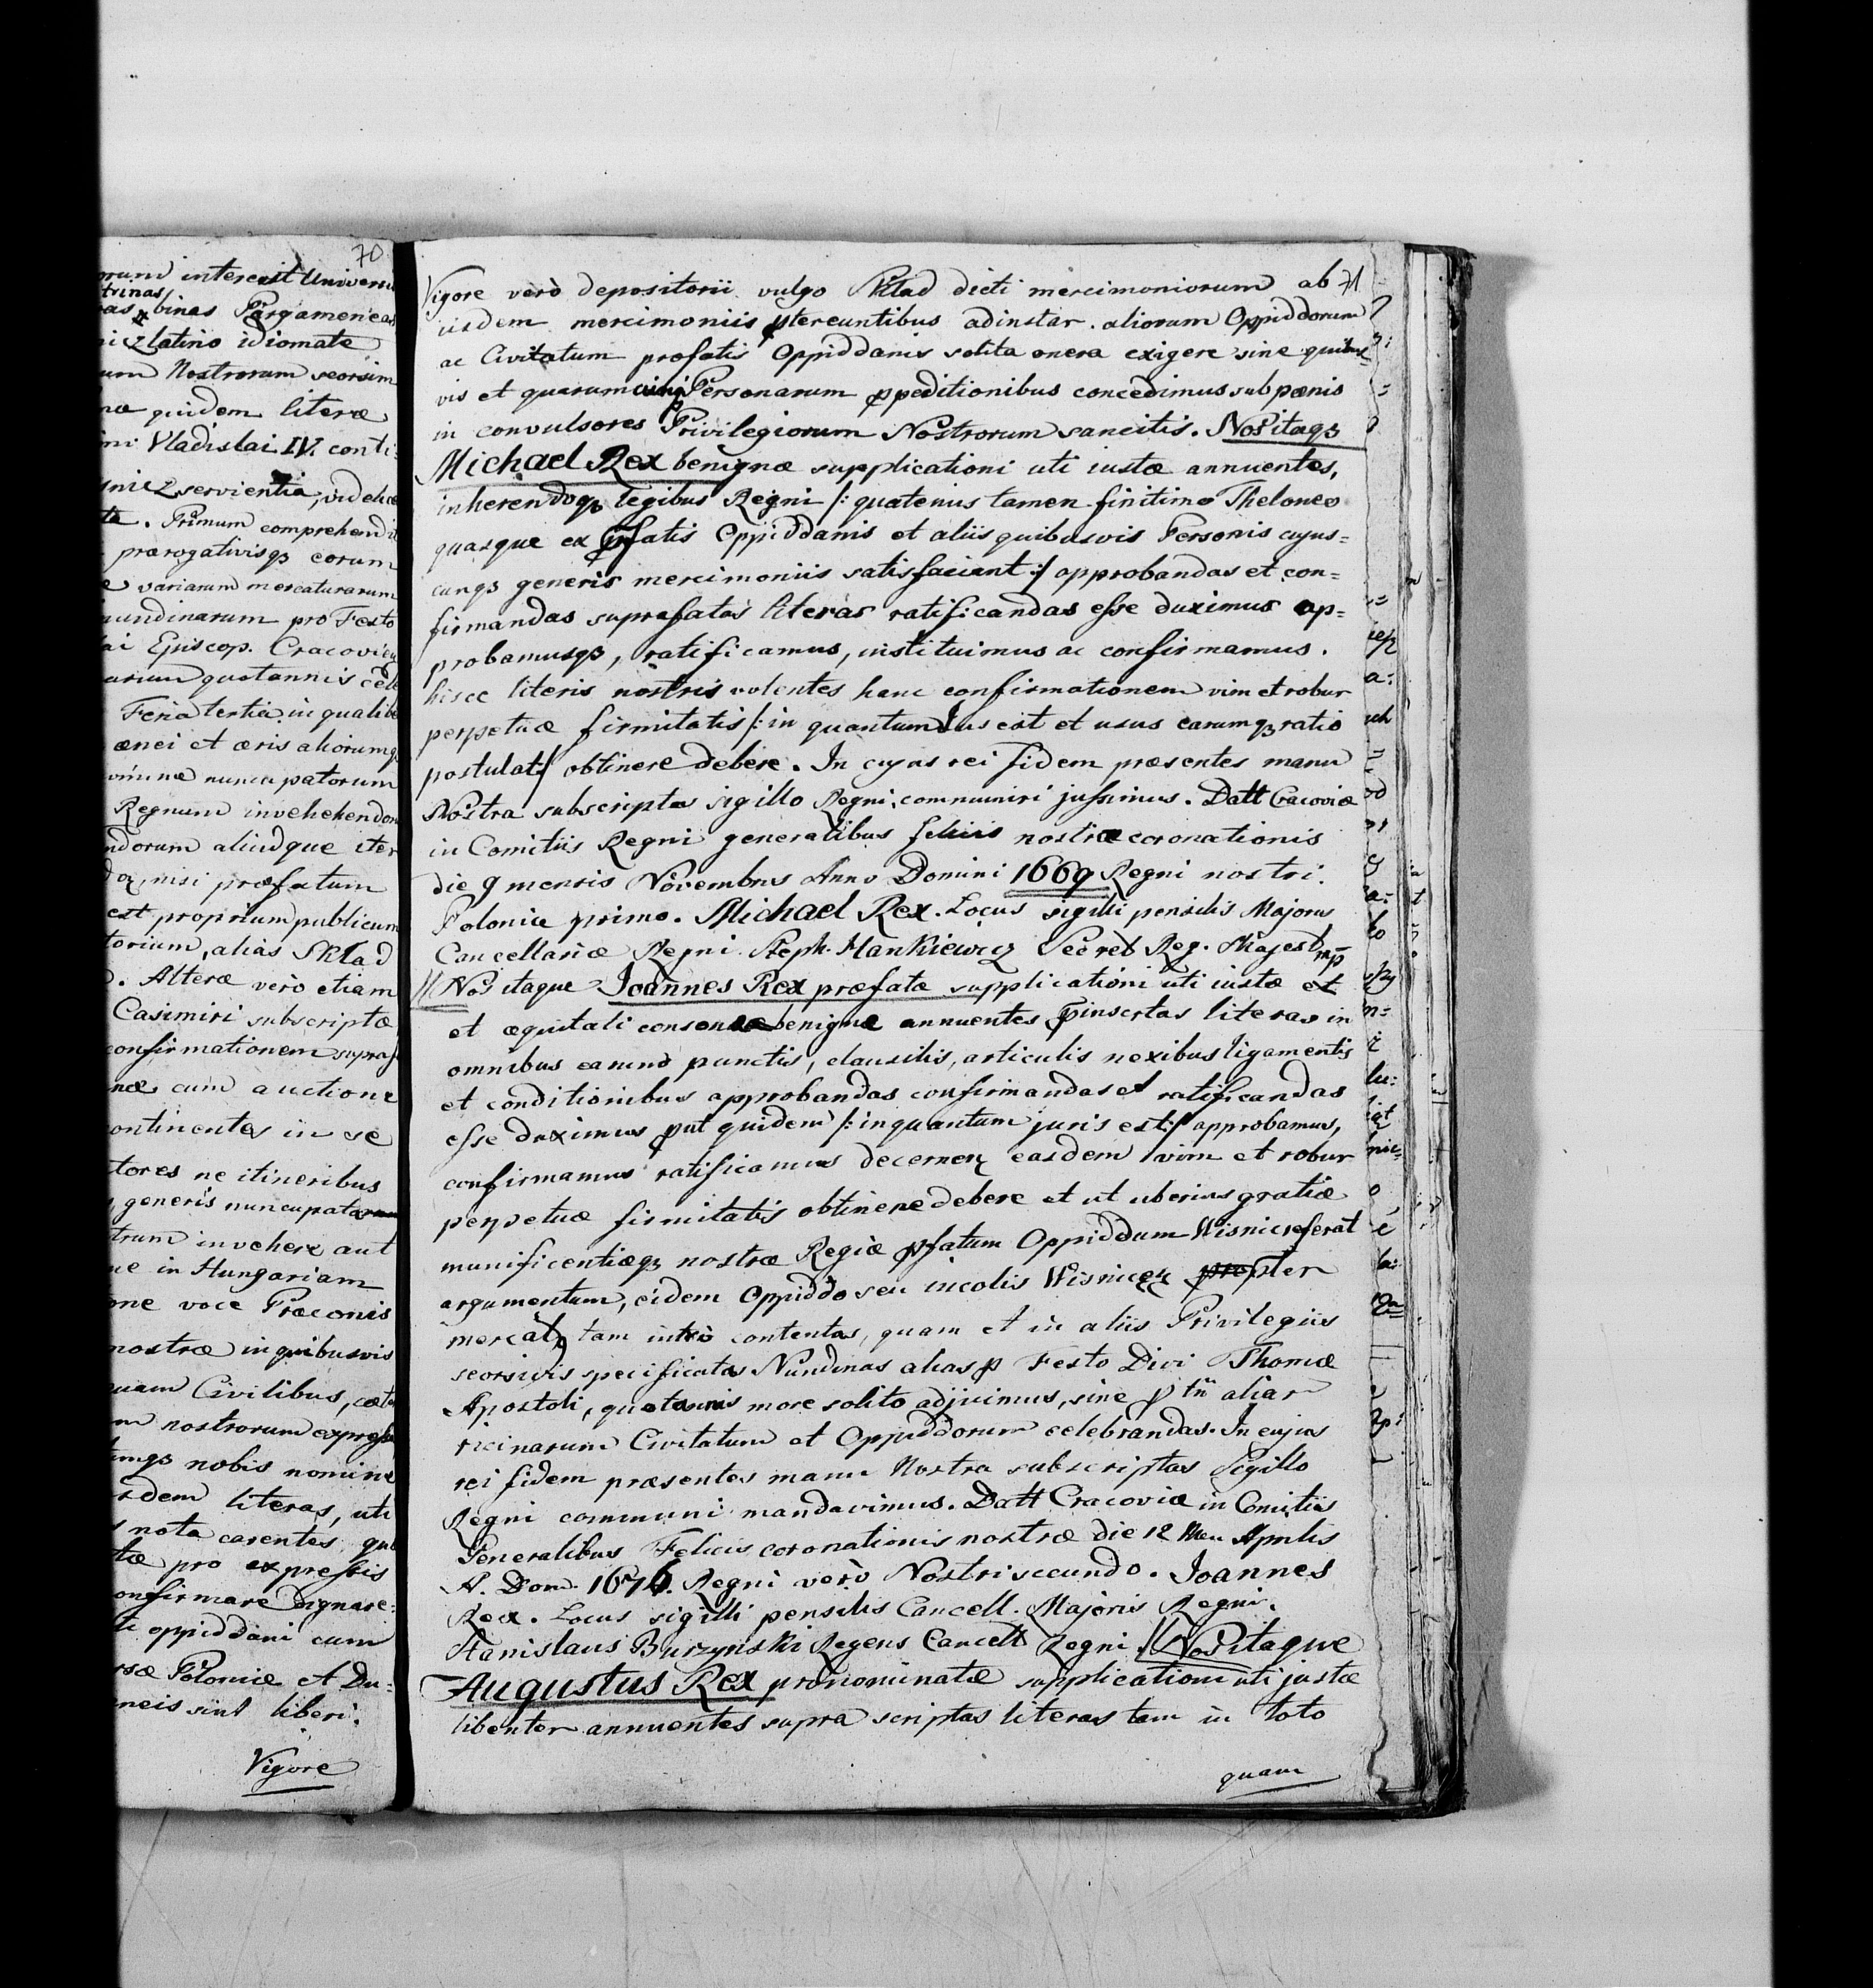 70
orum interest Univers
trinas
as x binas Pargameneas
icz latino idiomate
um Nostrorum seorsim
næ quidem literæ
mi Vladislai IV. conti:
nicz servientia, videlice
te. Primum comprehendit
prærogativisqз eorum
e variarum mercaturarum
undinarum pro Festo
ai Episcop. Cracovien
arum quotannis cele
Feria tertia in qualibe
ænei et æris aliorumq
nomine nuncupatorum
Regnum invehehendor
ndorum aliudque iter
nisi præfatum
est proprium publicum
torium, alias Sklad
. Alteræ verò etiam
Casimiri subscriptæ
confirmationem supraf
næ cum auctione
continentes in se
tores ne itineribus
generis nuncupatarum
trum invehere aut
ne in Hungariam
one voce Præconis
nostræ in quibusvis
uam Civilibus, cæte
m nostrorum expresse
umqз nobis nomine
sdem literas, uti
nota carentes, qua
tiæ pro expressis
onfirmare dignare:
ti oppiddani cum
rsæ Poloniæ et Du:
neis sint liberi.
Vigore
71
Vigore verò depositorii vulgo Sklad dicti mercimoniorum ab
iisdem mercimoniis ptereuntibus adinstar aliorum Oppiddorum
ac Civitatum profatis Oppiddanis solita onera exigere sine quibus
vis et quarumvis Personarum ppeditionibus concedimus sub pœnis
in convulsores Privilegiorum Nostrorum sancitis. Nos itaqз
Michael Rex benignæ supplicationi uti iustæ annuentes,
inherendoqз legibus Regni /: quatenus tamen finitimo Theloneo
quasque ex pfatis Oppiddanis et aliis quibusvis Personis cujus=
cunqз generis mercimoniis satisfaciant :/ approbandas et con=
firmandas suprafatas literas ratificandas esse duximus ap=
probamusqз, ratificamus, instituimus ac confirmamus.
hisce literis nostris volentes hanc confirmationem vim et robur
perpetuæ firmitatis /: in quantum Jus est et usus earumqз ratio
postulat :/ obtinere debere. In cujus rei fidem præsentes manu
Nostra subscriptas sigillo Regni communiri jussimus. Datt Cracoviæ
in Comitiis Regni generalibus felicis nostræ coronationis
die 9 mensis Novembris Anno Domini 1669 Regni nostri.
Poloniæ primo. Michael Rex. Locus sigilli pensilis Majoris
Cancellariæ Regni Steph. Hankiewicz Secret Reg. Majest mp
// Nos itaque Joannes Rex præfatæ supplicationi uti iustæ et
et æquitati consonæ benigne annuentes pinsertas literas in
omnibus earum punctis, clausulis, articulis nexibus ligamentis
et conditionibus approbandas confirmandas et ratificandas
esse duximus put quidem /: in quantum juris est :/ approbamus,
confirmamus ratificamus decernen easdem vim et robur
perpetuæ firmitatis obtinere debere et ut uberius gratiæ
munificentiæqз nostræ Regiæ pfatum Oppiddum Wisnic referat
argumentum, eidem Oppiddo seu incolis Wisnicen propter
mercat tam intro contentas, quam et in aliis Privilegiis
seorsivis specificatas Nundinas alias p Festo Divi Thomæ
Apostoli, quotannis more solito adjicimus, sine p tii aliar
vicinarum Civitatum et Oppiddorum celebrandas. In cujus
rei fidem præsentes manu Nostra subscriptas Sigillo
Regni communi mandavimus. Datt Cracoviæ in Comitiis
Generalibus Felicis coronationis nostræ die 12 Men Aprilis
A. Dom. 1676. Regni verò Nostri secundo. Joannes
Rex. Locus sigilli pensilis Cancell. Majoris Regni.
Stanislaus Burzynski Regens Cancell Regni. // Nos itaque
Augustus Rex prænominatæ supplicationi uti justæ
libenter annuentes supra scriptas literas tam in toto
quam